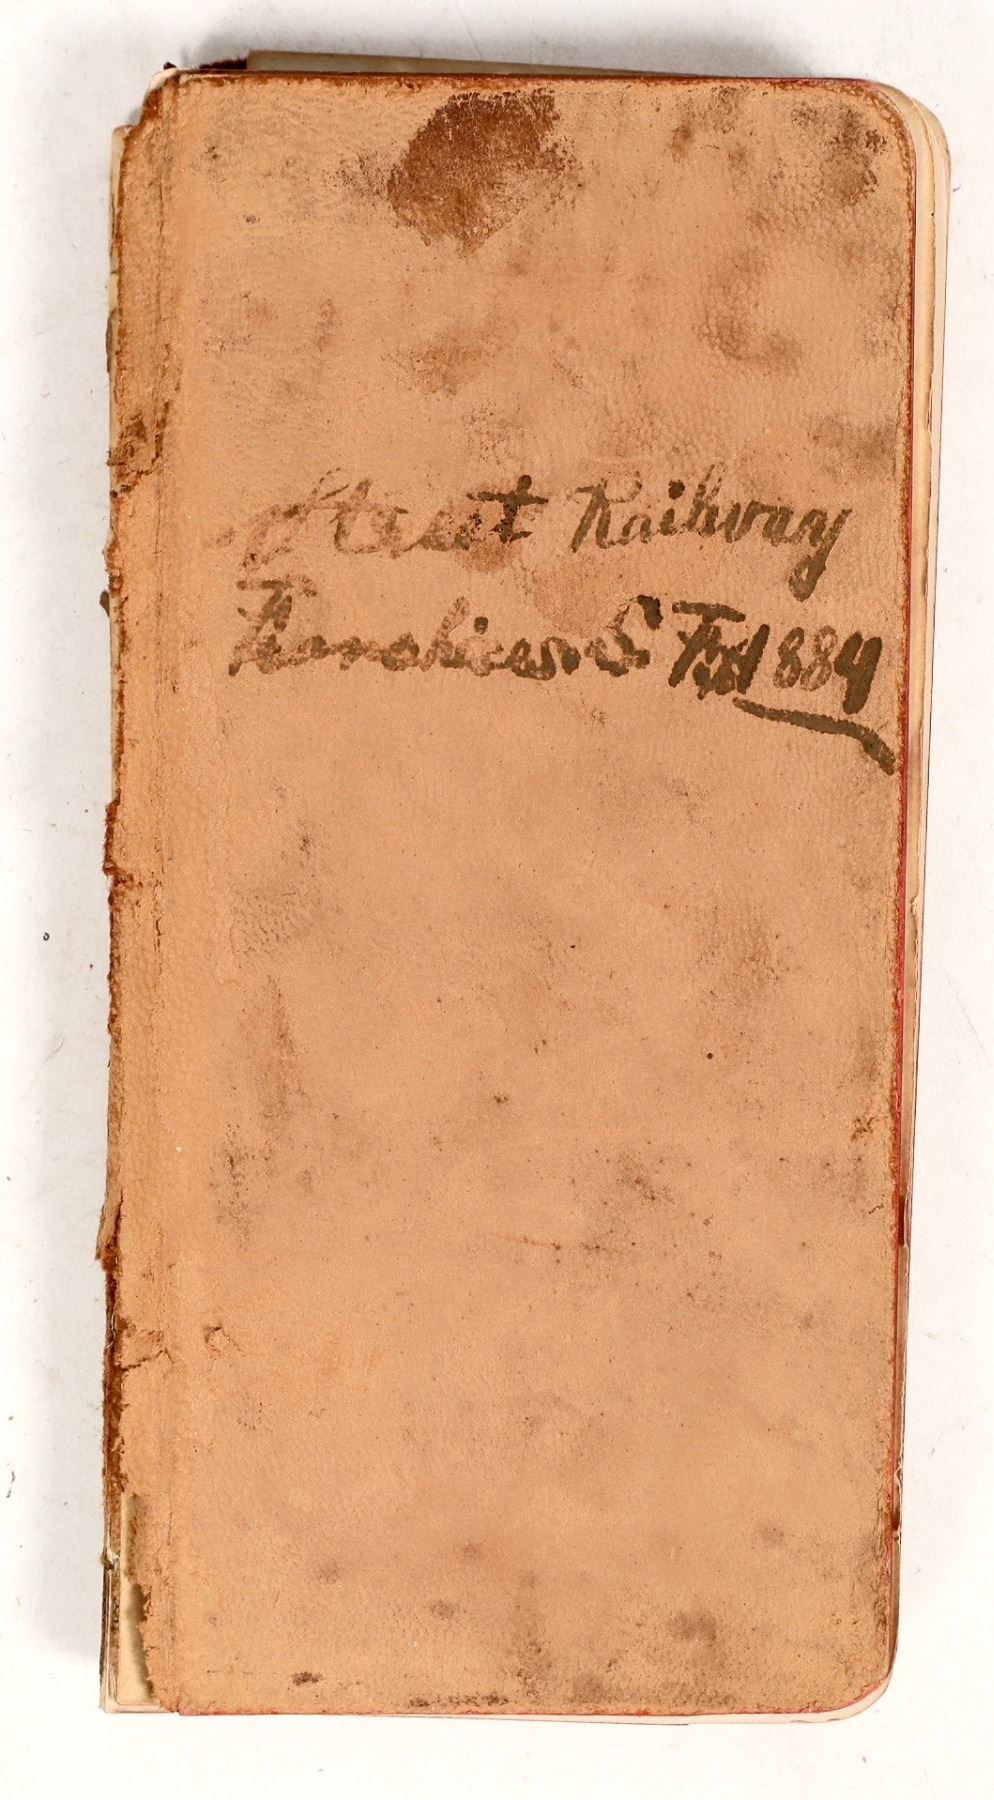 Street Railway
Franchises S. F. 1884